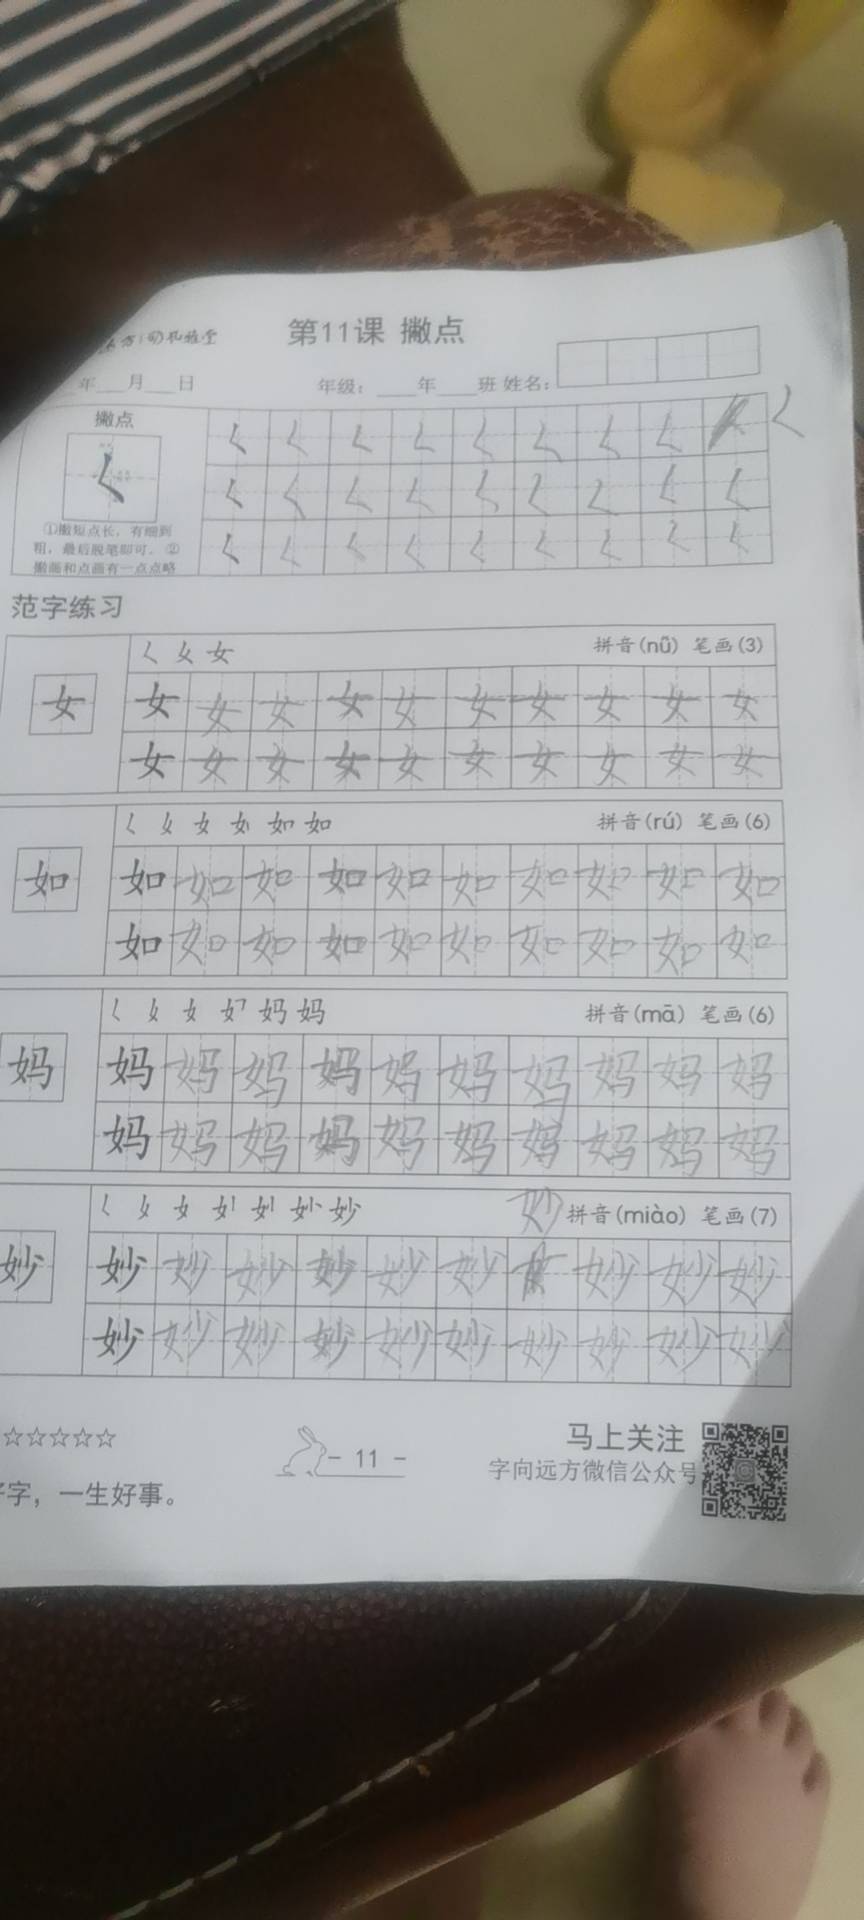 第11课 撇点
年 月 日 年级： 年 班 姓名：
撇点
①撇短点长，有细到
粗，最后脱笔即可。②
撇画和点画有一点点略
范字练习
𡿨 女 女 拼音(nǚ) 笔画(3)
女 女 女 女 女 女 女 女 女 女 女
女 女 女 女 女 女 女 女 女 女
如 如 拼音(rú) 笔画(6)
如 如 如 如 如 如 如 如 如 如 如
如 如 如 如 如 如 如 如 如 如
妈 妈 拼音(mā) 笔画(6)
妈 妈 妈 妈 妈 妈 妈 妈 妈 妈 妈
妈 妈 妈 妈 妈 妈 妈 妈 妈 妈
妙 妙 拼音(miào) 笔画(7)
妙 妙 妙 妙 妙 妙 妙 妙 妙 妙
妙 妙 妙 妙 妙 妙 妙 妙 妙 妙
☆☆☆☆☆
- 11 -
马上关注
字向远方微信公众号
字，一生好事。